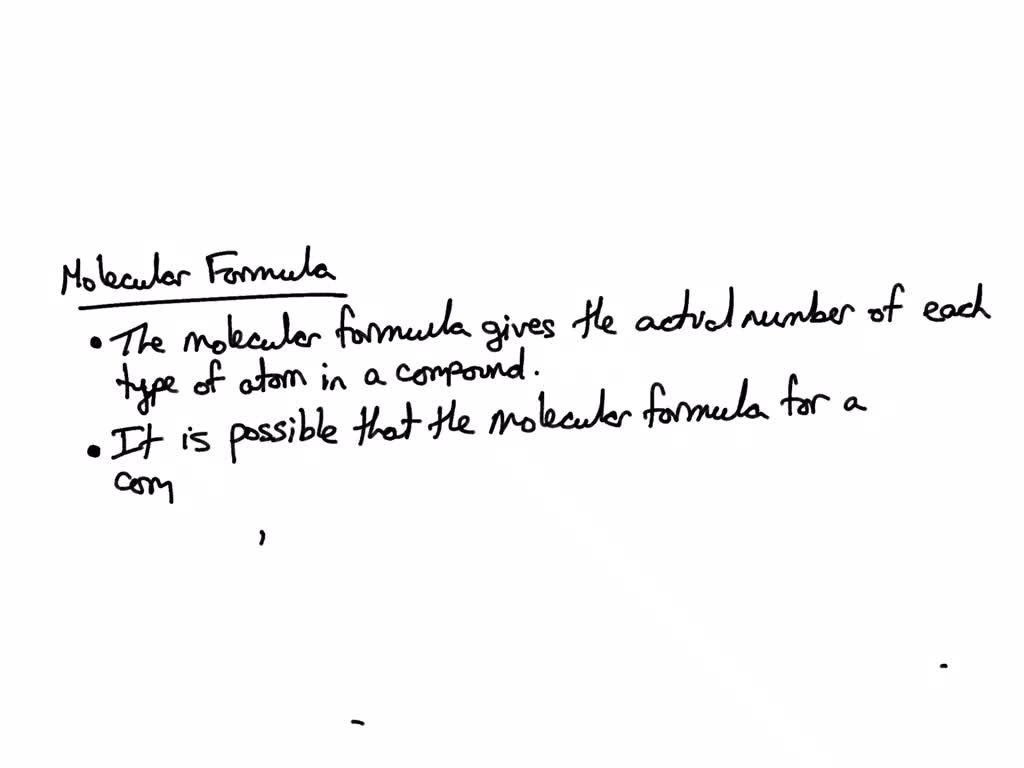 Molecular Formula
• The molecular formula gives the actual number of each
type of atom in a compound.
• It is possible that the molecular formula for a
com